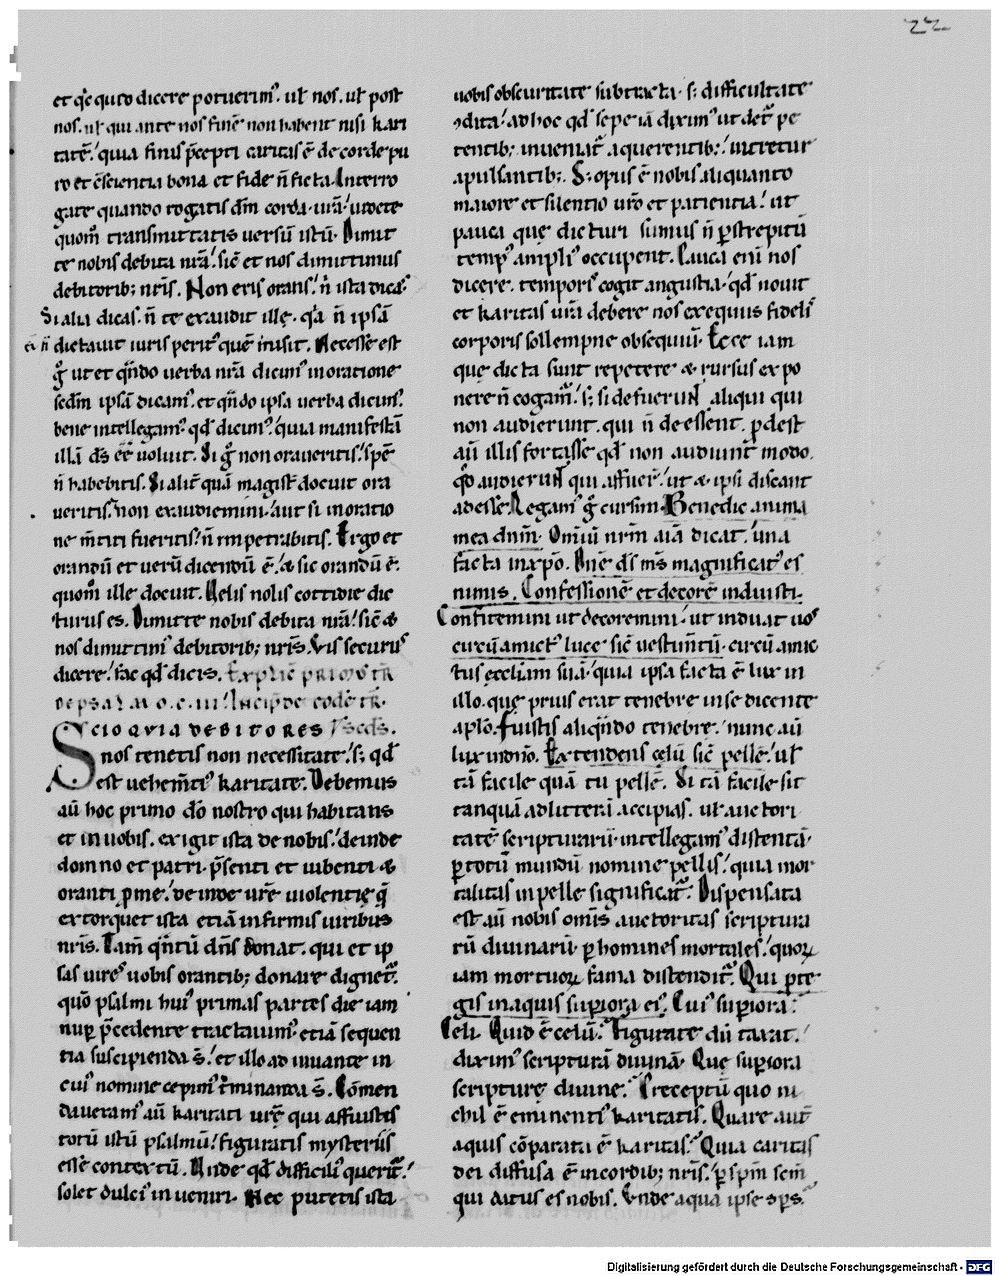 22
et q̄e quido dicere potuerim'. uł nos. uł post
nos. uł qui ante nos finē non habent nisi kari
tatē. quia finis p̄cepti caritas ē de corde pu
ro et c̄scientia bona et fide n̄ ficta. Interro
gate quando rogatis dm̄ corda ur̄a. uidete
quom̊ transmittatis uersū istū. Dimit
te nobis debita nr̄a. sic̄ et nos dimittimus
debitorib; nr̄is. Non eris orans. n̄ ista dicas
Si alia dicas. n̄ te exaudit ille. q̄a n̄ ipsā
dictauit iuris perit' quē misit. Necesse est
g̊ ut et q̄ndo uerba nr̄a dicim' in oratione
sedm̄ ipsā dicam'. et q̄ndo ipsa uerba dicim'.
bene intellegam' qd̄ dicim'. quia manifestā
illā ds̄ eē̄ uoluit. Si g̊ non oraueritis. spē
n̄ habebitis. Si alit̄ quā magist̄ docuit ora
ueritis. non exaudiemini. aut si in oratio
ne m̄titi fueritis. n̄ impetrabitis. Ergo et
orandū et uerū dicendū ē. & sic orandū ē.
quom̊ ille docuit. Uelis nolis cottidie dic
turus es. Dimitte nobis debita nr̄a. sic̄ &
nos dimittim' debitorib; nr̄is. Vis securus
dicere. fac qd̄ dicis. Explic̄ primus tr̄
de psalmo .c.iii. Incip̄ de eodē tr̄.
SCIO QVIA DEBITORES / Scds̄.
nos tenetis non necessitate. s; qd̄
est uehem̄ti' karitate. Debemus
aū hoc primo dō nostro qui habitans
et in uobis. exigit ista de nobis. deinde
domno et patri p̄senti et iubenti &
oranti p̱ me. deinde ur̄e uiolentię q̄
extorquet ista etiā infirmis uiribus
nr̄is. Tam̄ q̄ntū dn̄s donat. qui et ip
sas uires uobis orantib; donare dignet̄.
quō psalmi hui' primas partes die iam
nup̱ p̄cedente tractauim' etiā sequen
tia suscipienda s̄. et illo adiuuante in
cui' nomine cepim' t̄minanda s̄. Cōmen
daueram' aū karitati ur̄e qui affuistis
totū istū psalmū. figuratis mysteriis
esse contextū. Unde qd̄ difficili' querit̄.
solet dulci' inueniri. Nec putetis ista
uobis obscuritate subtracta. s; difficultate
ɔdita. ad hoc qd̄ sepe iā dixim' ut det̄ pe
tentib; inueniat̄ a querentib; intretur
a pulsantib;. S; opus ē nobis aliquanto
maiore et silentio ur̄o et patientia. ut
pauca quę dicturi sumus n̄ p̱ strepitū
temp' ampli' occupent. Pauca enī nos
dicere. temporis cogit angustia. qd̄ nouit
et karitas ur̄a debere nos exequiis fidelis
corporis sollempne obsequiū. Ecce iam
que dicta sunt repetere & rursus expo
nere n̄ cogam'. s; si defuerunt aliqui qui
non audierunt. qui n̄ deessent. p̱dest
aū illis fortasse qd̄ non audiunt modo.
qd̄ audierunt qui affuer̄. ut & ipsi discant
adesse. Legam' g̊ cursim. Benedic anima
mea dnm̄. Omiū nrm̄ aīa dicat. una
facta in xp̄o. Dn̄e ds̄ ms̄ magnificat' es
nimis. Confessionē et decorē induisti.
Confitemini ut decoremini. ut induat uos
circū amict' luce sic̄ uestim̄tū. circū amic
tus eccl̄iam suā. quia ipsa facta ē lux in
illo. que prius erat tenebre in se dicente
apl̄o. Fuistis aliq̄ndo tenebre. nunc aū
lux in dn̄o. Extendens celū sic̄ pellē. uł
tā facile quā tu pellē. Si tā facile sit
tanquā ad litterā accipias. uł auctori
tatē scripturarū intellegam' distentā
p̱ totū mundū nomine pellis. quia mor
talitas in pelle significat̄. Dispensata
est aū nobis omis auctoritas scriptura
rū diuinarū p̱ homines mortales. quoꝝ
iam mortuoꝝ fama distendit̄. Qui pte
gis in aquis sup̱iora ei'. Cui' sup̱iora.
Celi. Quid ē celū. Figurate dū taxat.
dixim' scripturā diuinā. Que sup̱iora
scripturę diuine. Preceptū quo ni
chil ē eminenti' karitatis. Quare aut̄
aquis cōparata ē karitas. Quia caritas
dei diffusa ē in cordib; nr̄is. p̱ spm̄ scm̄
qui datus es nobis. Unde aqua ipse sps̄.